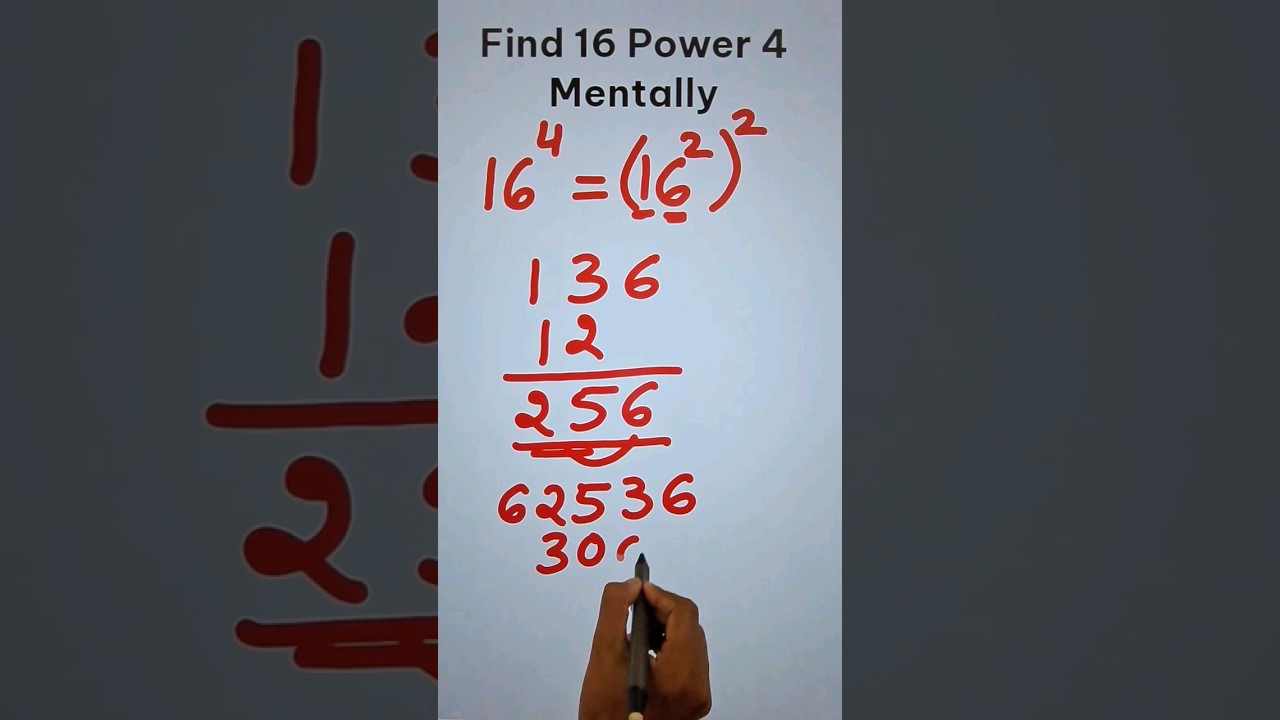 Find 16 Power 4
Mentally
16⁴ = (16²)²
136
12
256
62536
300